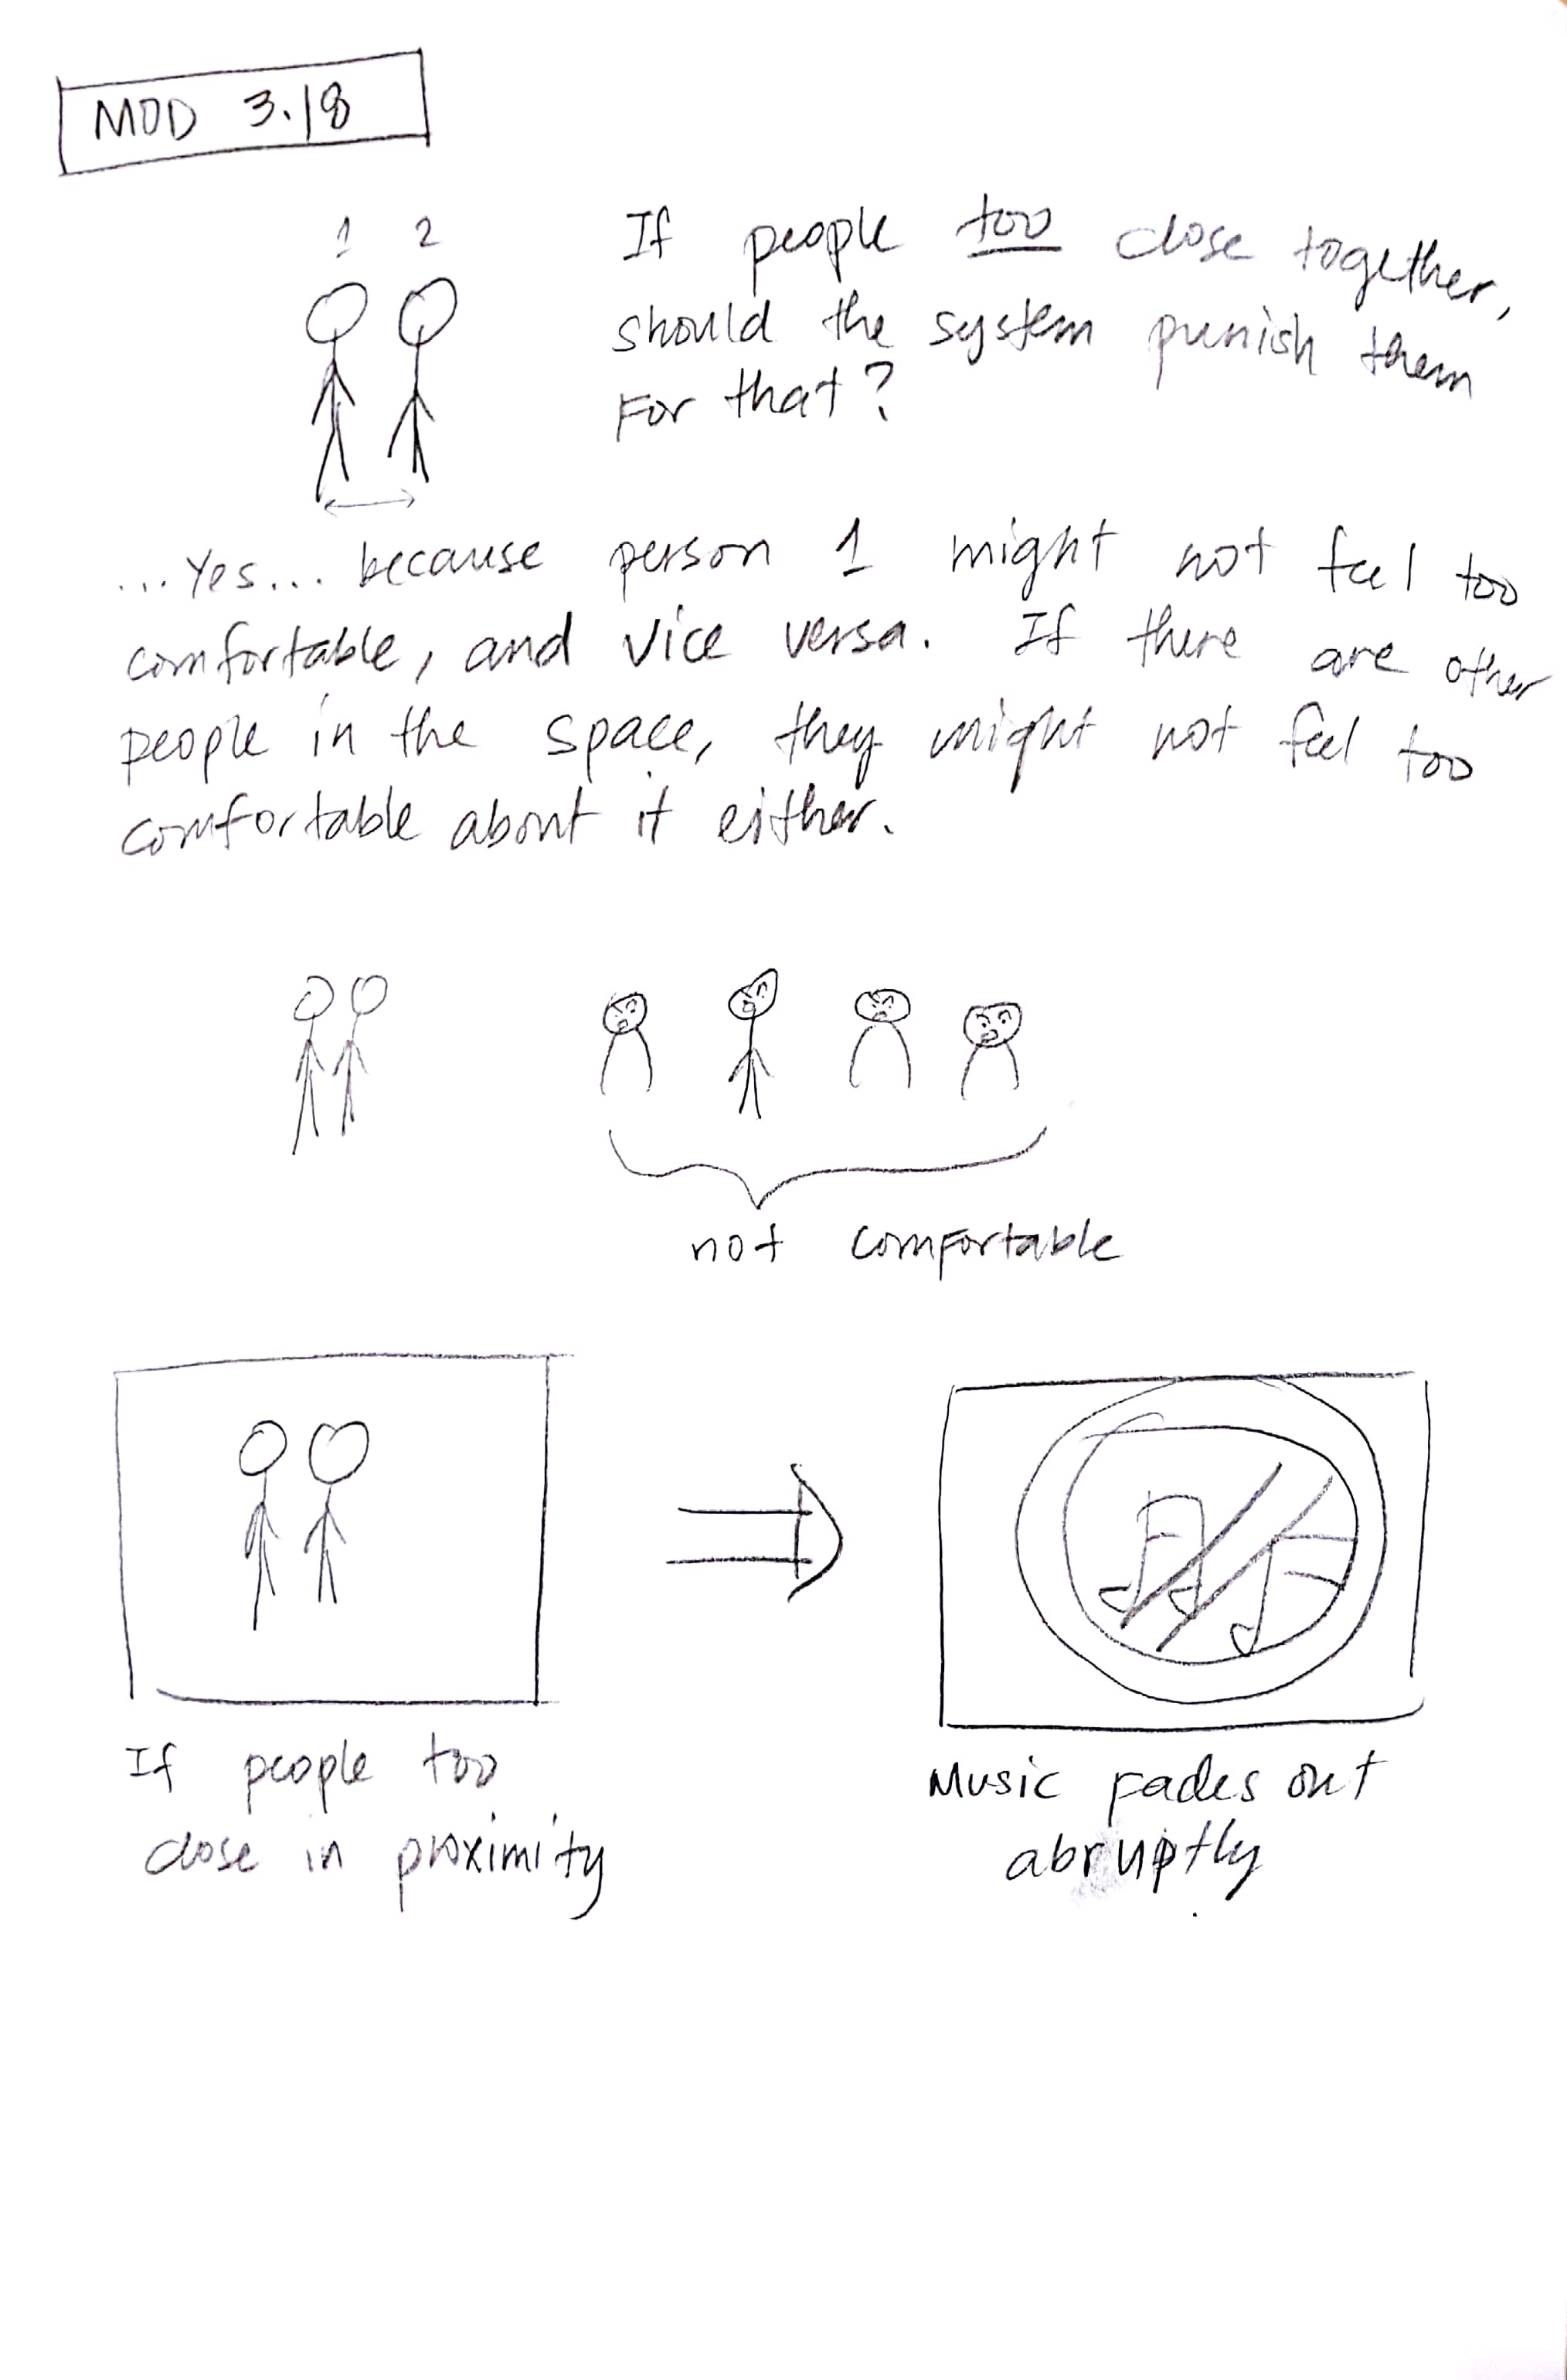 MOD 3.18
1 2
If people too close together,
should the system punish them
For that?
...Yes... because person 1 might not feel too
comfortable, and vice versa. If there are other
people in the space, they might not feel too
comfortable about it either.
not comfortable
If people too
close in proximity
Music fades out
abruptly